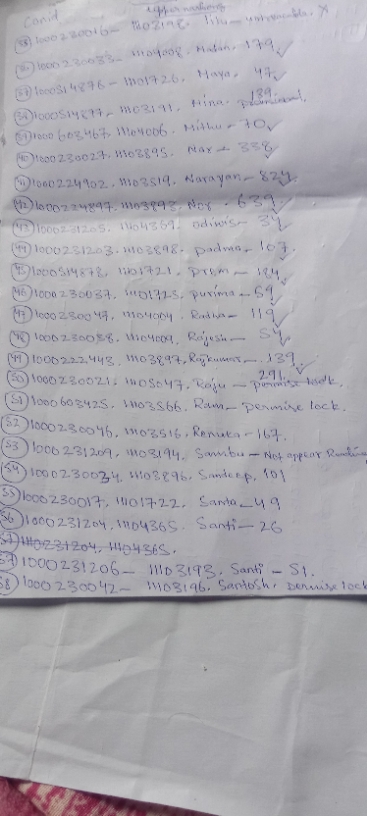 Conid
1000230016 - 11103198.
36 1000230033 - 11104008 - Madan. 179 ✓
37 1000514876 - 1101726, Maya. 47 ✓
38 1000514877 - 1103171, Mina. 139
39 1000603467, 1104006. Mithu - 70 ✓
40 1000230027, 11103895, Nar - 338 ✓
41 1000224902, 11103519, Narayan - 824 ✓
42 1000234897, 11103893, Nar. 639 ✓
43 1000231205, 1104369. - 34 ✓
44 1000231203, 11103898, padma - 107 ✓
45 1000514878, 1101721, prem - 184 ✓
46 1000230037, 1101725, purima - 59 ✓
47 1000230047, 1104004 Radha - 119 ✓
48 1000230038, 11104009, Rajesh - 54 ✓
49 1000222443, 1103897, Rajkumar - 139 ✓
50 1000230021, 11105047, Raju - 291
51 1000603425, 1103566, Ram - permise lock.
52 1000230046, 1103516, Renuka - 167.
53 1000231209, 11103194, Sambu - Not appear Reading
54 1000230034, 11103896, Sandeep, 101
55 1000230017, 1101722, Santa - 49
56 1000231204, 1104365, Santi - 26
57 1000231206 - 11103193, Santi - 51.
58 1000230042 - 11103196, Santosh, permise lock